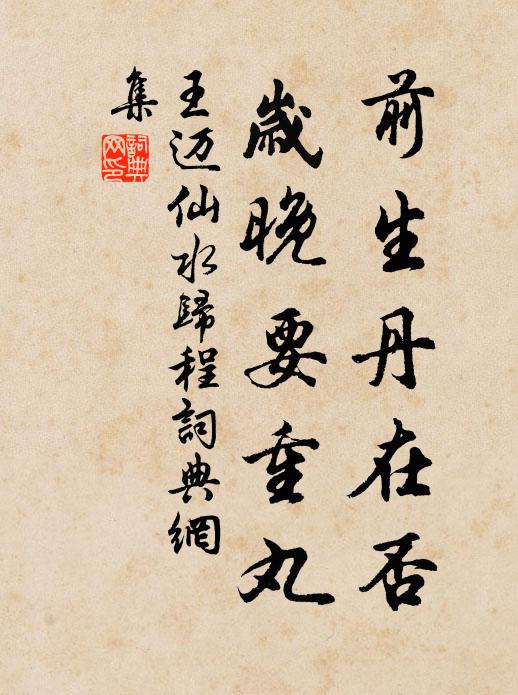 前生丹在否
歲晚要重丸
王迈仙水歸程詞典網
集
詞典
网印